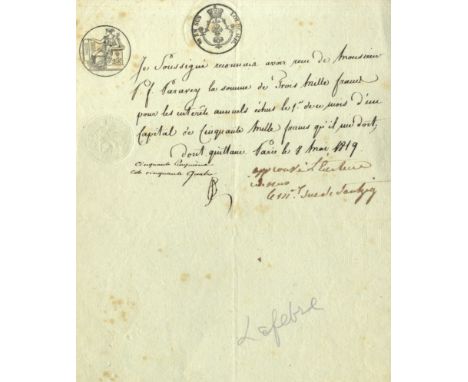 Je Soussigné reconnais avoir reçu de Monsieur
P. J. Paravey la somme de Trois mille francs
pour les intérêts annuels échus le 1er de ce mois d'un
Capital de Cinquante Mille francs qu'il me doit,
dont quittance Paris le 8 Mai 1819
approuvé l'Ecriture
ci dessus
le Mal. duc de
Lefebre